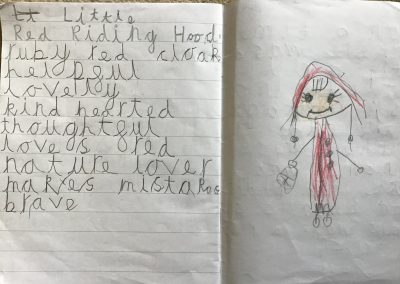 Lt Little
Red Riding Hood.
ruby red cloak
helpful
lovelly
kind hearted
thoughtful
loves red
nature lover
makes mistakes
brave